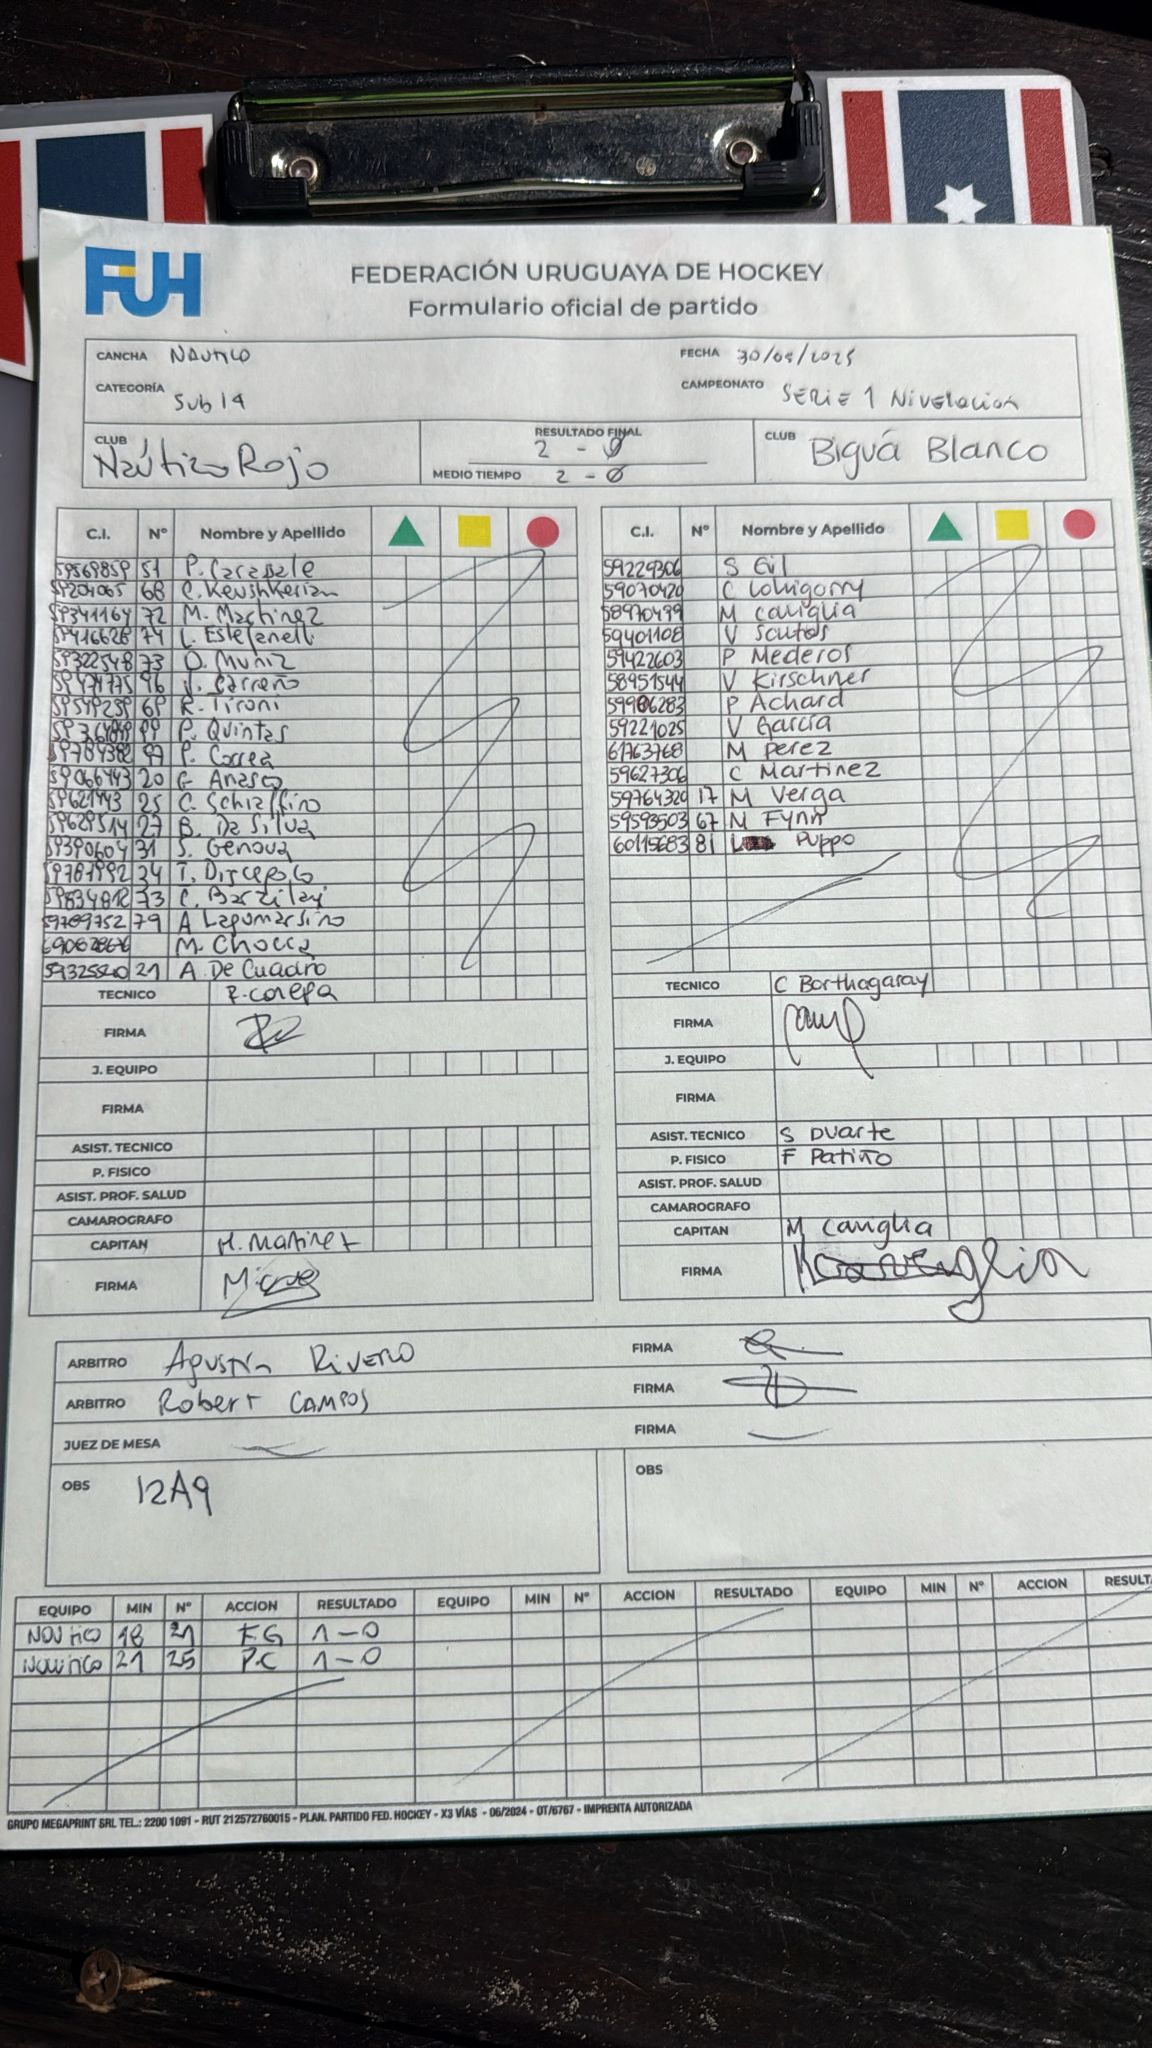 FUH
FEDERACIÓN URUGUAYA DE HOCKEY
Formulario oficial de partido
CANCHA NAUTICO FECHA 30/08/2025
CATEGORÍA Sub 14 CAMPEONATO SERIE 1 Nivelacion
CLUB Naútico Rojo RESULTADO FINAL 2 - 0 CLUB Biguá Blanco
MEDIO TIEMPO 2 - 0
C.I. Nº Nombre y Apellido
51 P. Carabale
68 C. Keushkerian
59341164 72 M. Martinez
59416628 74 L. Estefanell
59322548 73 O. Muniz
96 J. Carreño
59549239 69 R. Tironi
99 P. Quintas
59784382 97 P. Correa
59066443 20 G. Anasco
25 C. Schiaffino
59629514 27 B. Da Silva
59390604 31 S. Genova
59787992 34 T. Discepolo
59834812 73 C. Barzilay
59789752 79 A Lagumarsino
M. Chocca
59325520 21 A. De Cuadro
TECNICO
FIRMA
J. EQUIPO
FIRMA
ASIST. TECNICO
P. FISICO
ASIST. PROF. SALUD
CAMAROGRAFO
CAPITAN M. Martinez
FIRMA
C.I. Nº Nombre y Apellido
59229306 S Gil
59070420 C Lohigorry
58970499 M caviglia
59401108 V Scutos
59422603 P Mederos
58951544 V Kirschner
59906283 P Achard
59221025 V García
61763768 M perez
59627306 C Martinez
59764320 17 M Verga
59593503 67 M Fynn
60115683 81 L Puppo
TECNICO C Borthagaray
FIRMA
J. EQUIPO
FIRMA
ASIST. TECNICO S Duarte
P. FISICO F Patiño
ASIST. PROF. SALUD
CAMAROGRAFO
CAPITAN M caviglia
FIRMA
ARBITRO Agustín RIVERO FIRMA
ARBITRO Robert CAMPOS FIRMA
JUEZ DE MESA FIRMA
OBS 12A9 OBS
EQUIPO MIN Nº ACCION RESULTADO EQUIPO MIN Nº ACCION RESULTADO EQUIPO MIN Nº ACCION RESULT
NAUTICO 18 21 F.G 1-0
NAUTICO 21 25 P.C 1-0
GRUPO MEGAPRINT SRL TEL.: 2200 1091 - RUT 212572760015 - PLAN. PARTIDO FED. HOCKEY - X3 VÍAS - 06/2024 - OT/6767 - IMPRENTA AUTORIZADA